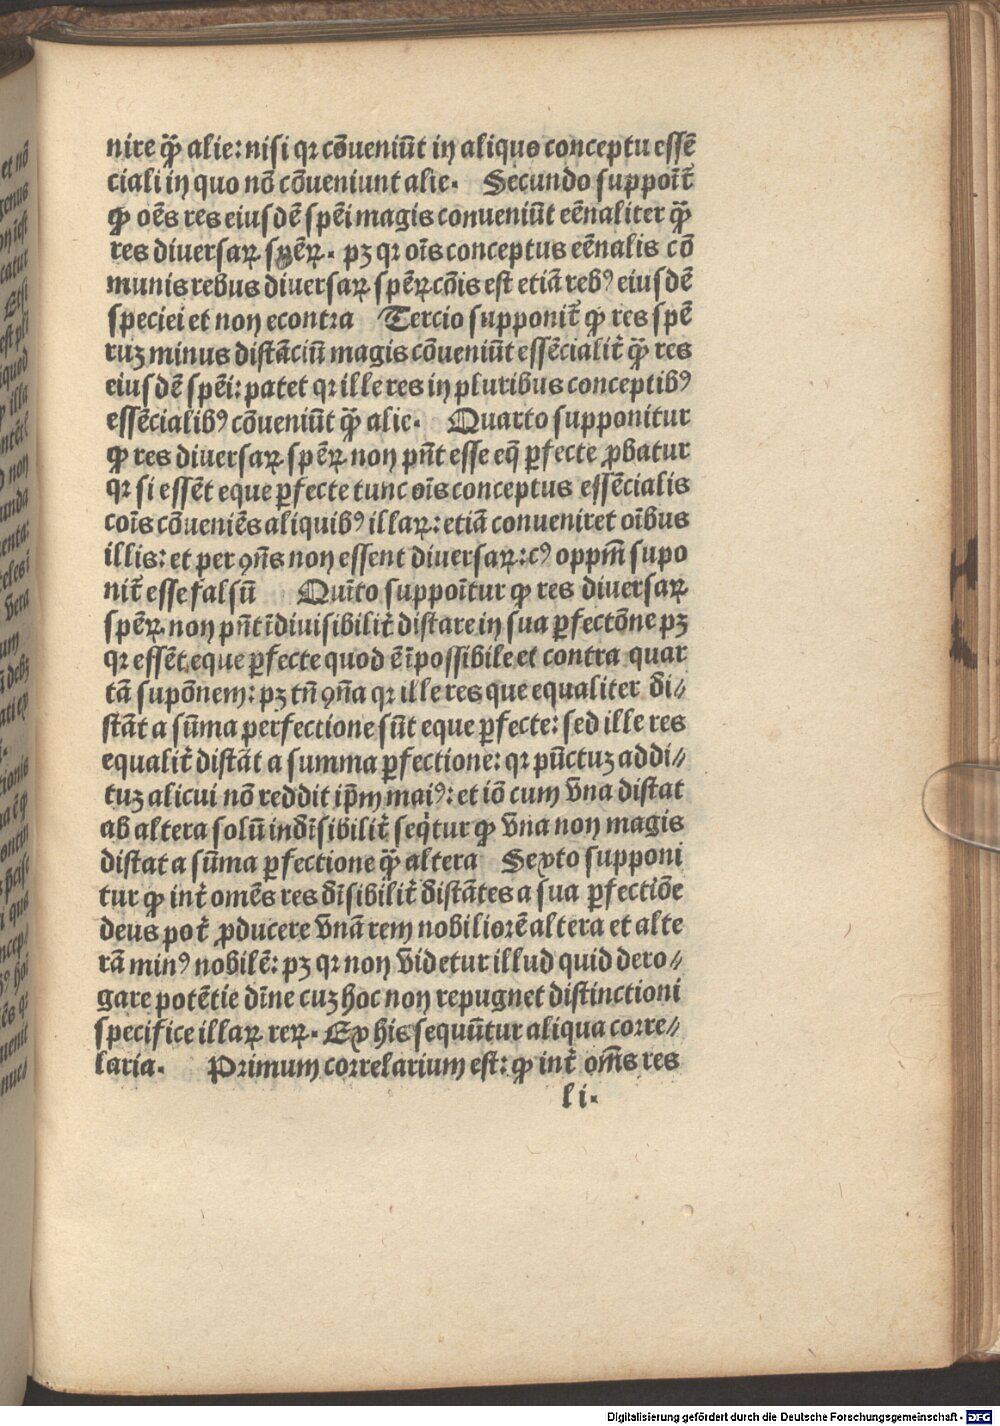 nire q̃ȝ alie: nisi qꝛ cōueniūt in aliquo conceptu essē
ciali in quo nō cōueniunt alie. Secundo suppoīt̄
ꝙ oēs res eiusdē spēi magis conueniūt eēnaliter q̃ȝ
res diuersaꝝ spēꝝ. pꝫ qꝛ oīs conceptus eēnalis cō
munis rebus diuersaꝝ spēꝝ cōis est etiā rebꝰ eiusdē
speciei et non econtra Tercio supponit̄ ꝙ res spē
ruꝫ minus distāciū magis cōueniūt essēcialit̄ q̃ȝ res
eiusdē spēi: patet qꝛ ille res in pluribus conceptibꝰ
essēcialibꝰ cōueniūt q̃ȝ alie. Quarto supponitur
ꝙ res diuersaꝝ spēꝝ non pn̄t esse eq̄ ꝑfecte ꝓbatur
qꝛ si essēt eque ꝑfecte tunc oīs conceptus essēcialis
coīs cōueniēs aliquibꝰ illaꝝ: etiā conueniret oībus
illis: et per ꝯn̄s non essent diuersaꝝ: cꝰ oppm̄ supo
nit̄ esse falsū Quīto suppoītur ꝙ res diuersaꝝ
spēꝝ non pn̄t īdiuisibilit̄ distare in sua ꝑfectōne pꝫ
qꝛ essēt eque ꝑfecte quod ē īpossibile et contra quar
tā supōnem: pꝫ tn̄ ꝯn̄a qꝛ ille res que equaliter di⸗
stāt a sūma perfectione sūt eque ꝑfecte: sed ille res
equalit̄ distāt a summa ꝑfectione: qꝛ pūctuꝫ addi⸗
tuꝫ alicui nō reddit ip̄m maiꝰ: et iō cum vna distat
ab altera solū indīsibilit̄ seq̇tur ꝙ vna non magis
distat a sūma ꝑfectione q̃ȝ altera Sexto supponi
tur ꝙ int̄ omēs res dīsibilit̄ distātes a sua ꝑfectiōe
deus pot̄ ꝓducere vnā rem nobiliorē altera et alte
rā minꝰ nobilē: pꝫ qꝛ non videtur illud quid dero⸗
gare potētie dīne cuꝫ hoc non repugnet distinctioni
specifice illaꝝ reꝝ. Ex his sequūtur aliqua corre⸗
laria. Primum correlarium est: ꝙ int̄ om̄s res
li.
Digitalisierung gefördert durch die Deutsche Forschungsgemeinschaft - DFG